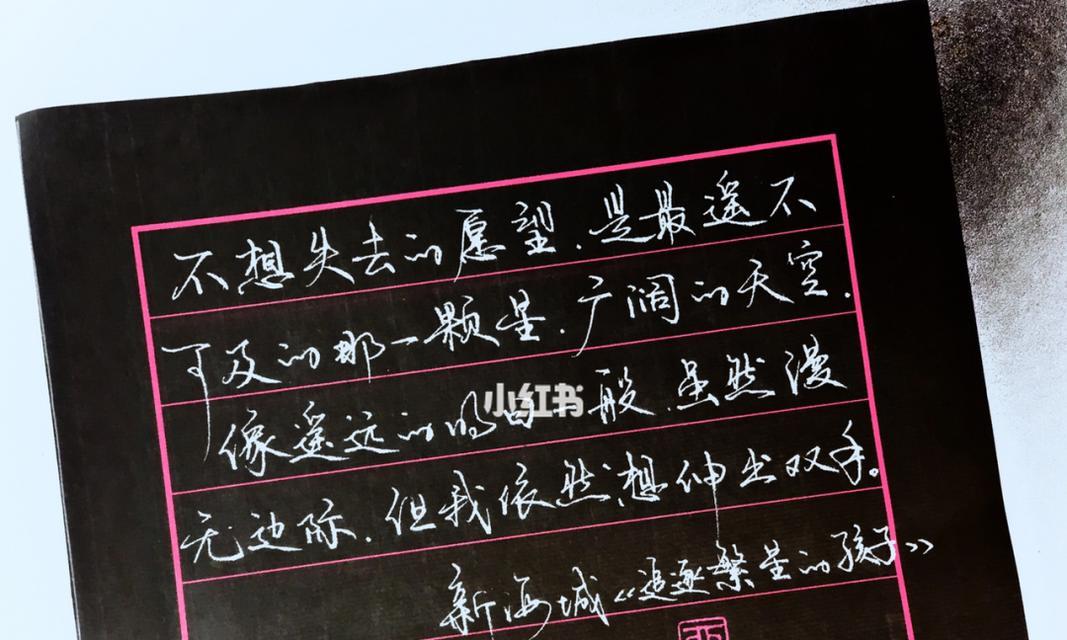 不想失去的愿望.是最遥不
可及的那一颗星.广阔的天空.
像遥远的明日一般.虽然漫
无边际.但我依然想伸出双手。
新海城《追逐繁星的孩子》
小红书